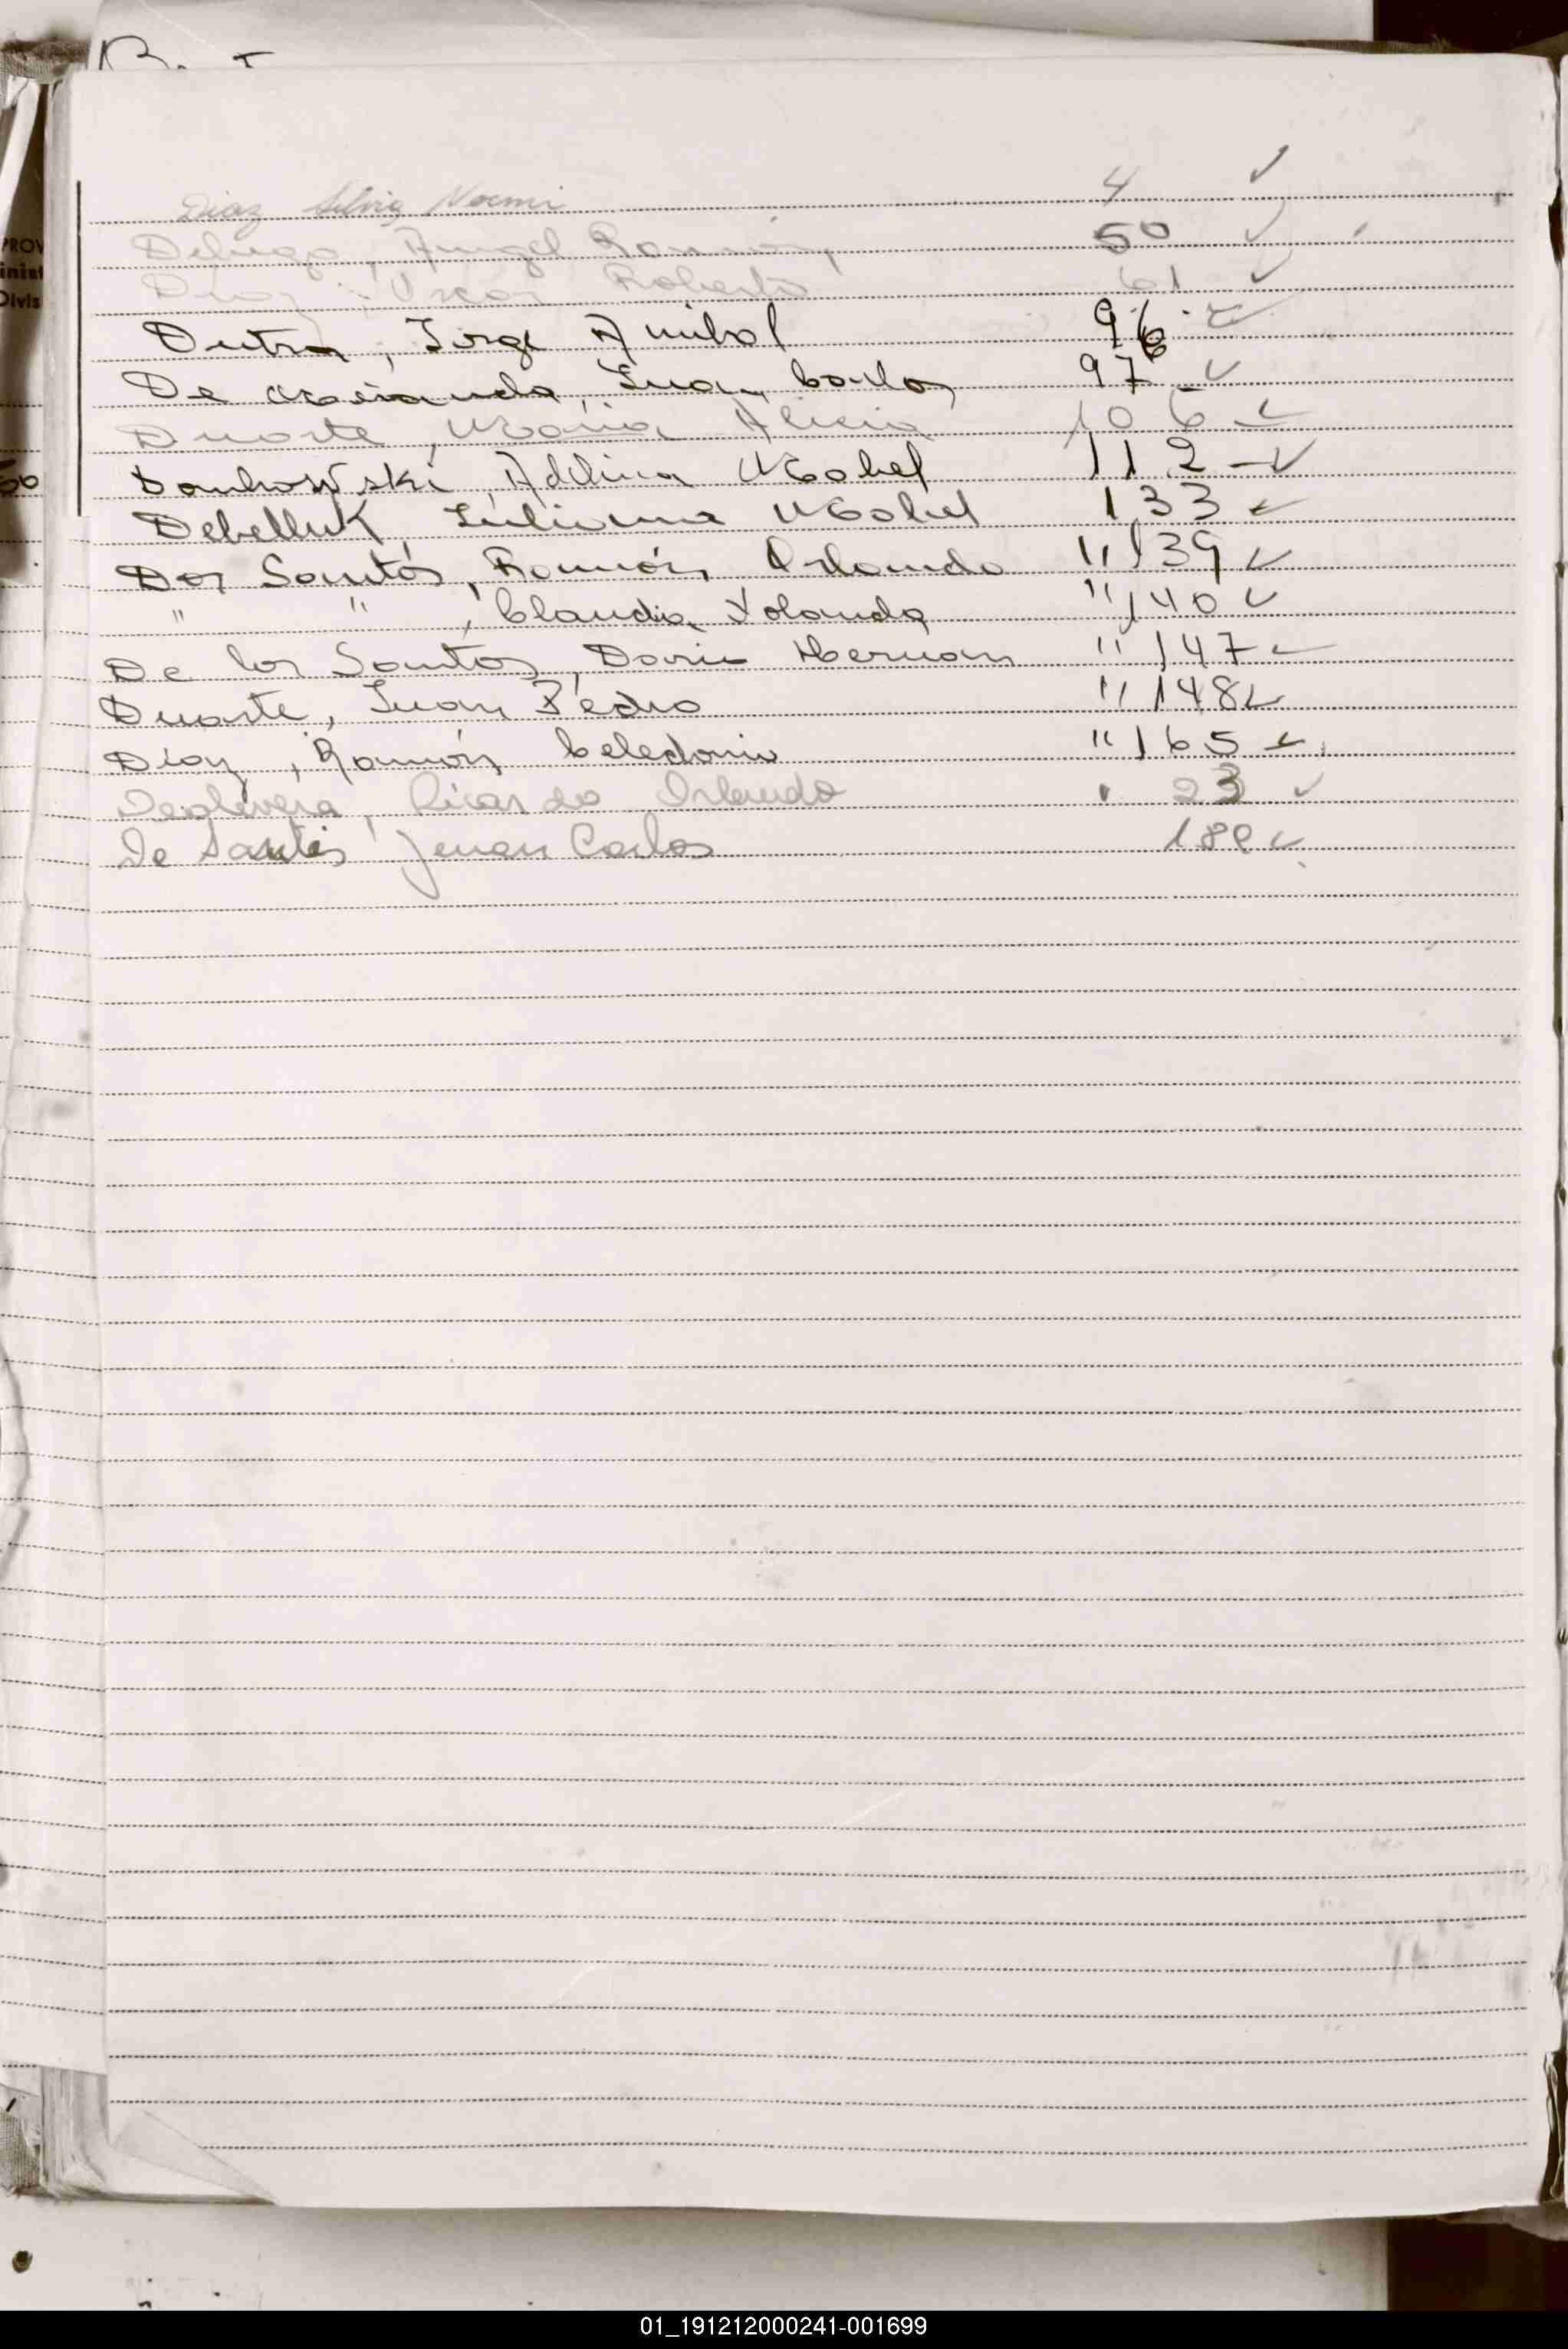 Diaz Silvia Noemi 4 ✓
Angel Ramón, 50 ✓
Diaz, Oscar Roberto 61 ✓
Dutra, Jorge Anibal 96 ✓
De Juan Carlos 97 ✓
Duarte, Maria Alicia 106 ✓
Dombowski, Adelina Mabel 112 ✓
Debelluk, Juliana Mabel 133 ✓
Dos Santos, Ramón Orlando " 139 ✓
" " , Claudia Yolanda " 140 ✓
De los Santos, Dario Hernan " 147 ✓
Duarte, Juan Pedro " 148 ✓
Diaz, Ramón Celedonio " 165 ✓
Deolivera, Ricardo Orlando 23 ✓
De Santis Juan Carlos ✓
01_191212000241-001699